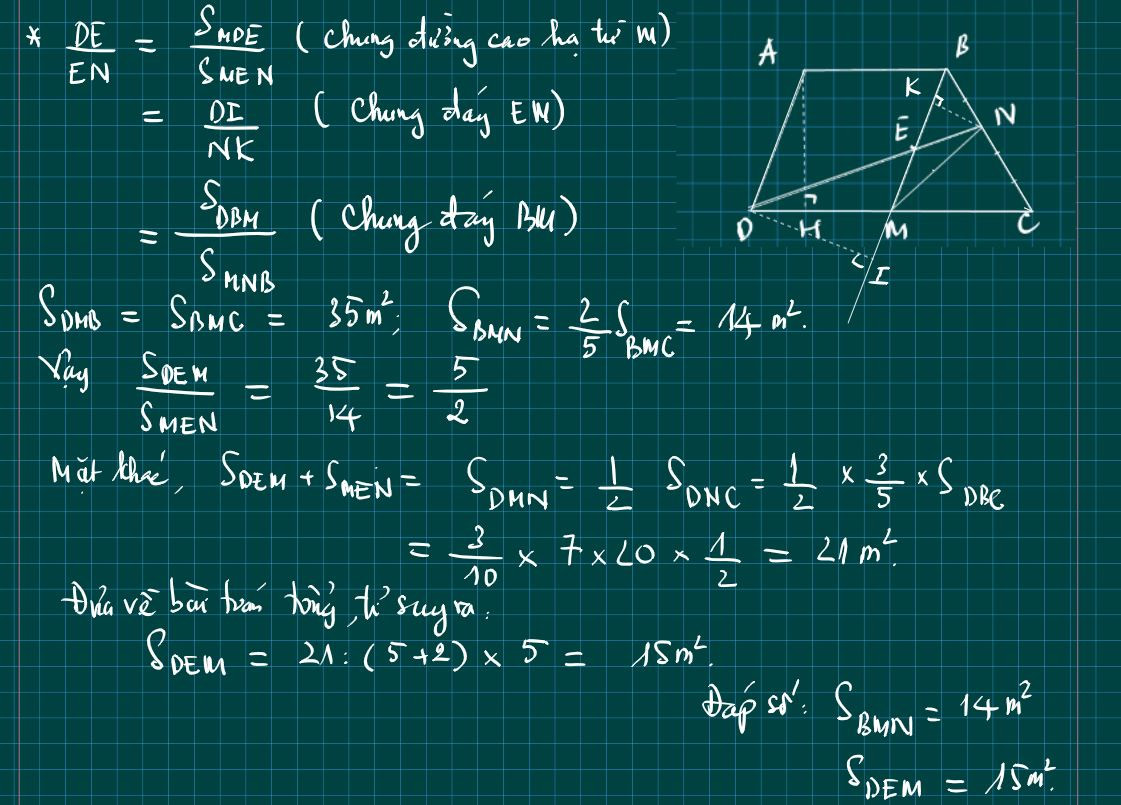 * DE/EN = S_MDE/S_MEN ( chung đường cao hạ từ M)
= DI/NK ( Chung đáy EM)
= S_DBM/S_MNB ( Chung đáy BM)
S_DMB = S_BMC = 35m²; S_BMN = 2/5 S_BMC = 14 m².
Vậy S_DEM/S_MEN = 35/14 = 5/2
Mặt khác, S_DEM + S_MEN = S_DMN = 1/2 S_DNC = 1/2 × 3/5 × S_DBC
= 3/10 × 7 × 20 × 1/2 = 21 m².
Đưa về bài toán tổng, tỉ suy ra:
S_DEM = 21 : (5+2) × 5 = 15m².
Đáp số: S_BMN = 14 m²
S_DEM = 15m².
A B
K
N
E
D H M C
I